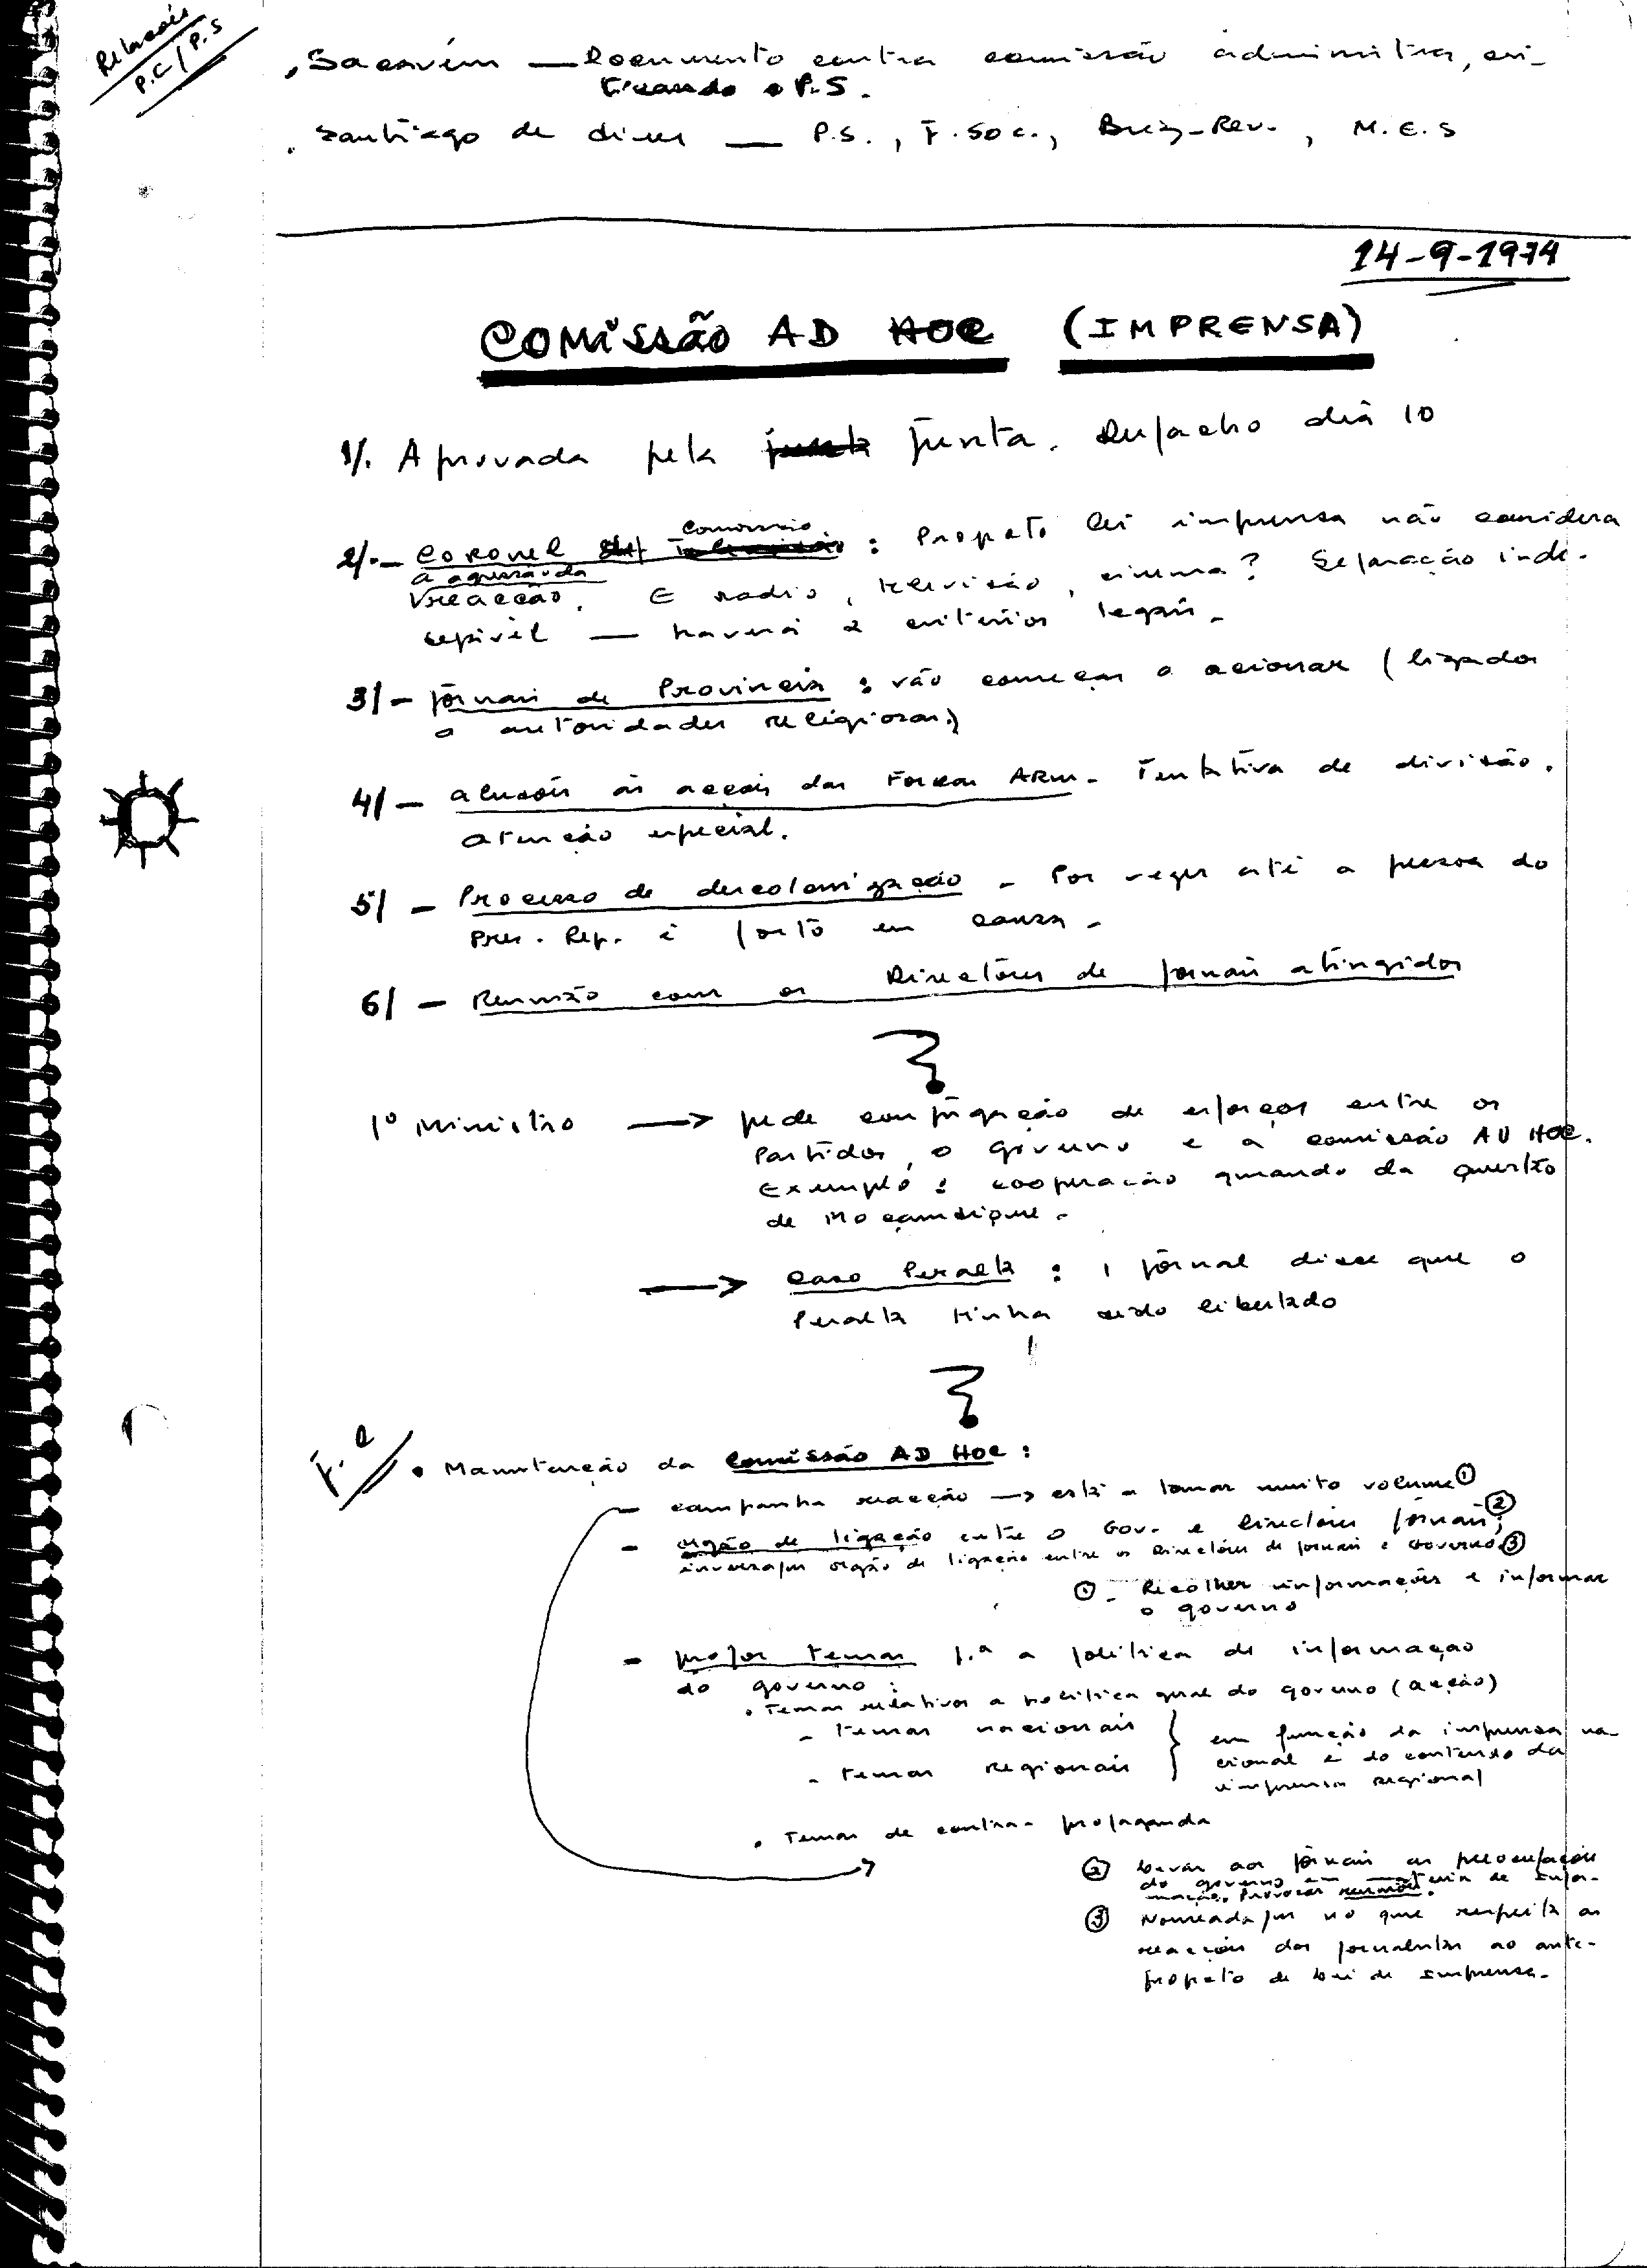 Relações
P.C / P.S
. Sacavém — Documento contra comissão administra, cri-
ticando o P.S.
. Santiago de — P.S., F. Soc., Brig-Rev., M.E.S
14-9-1974
COMISSÃO AD HOC (IMPRENSA)
1/. Aprovada pela Junta. Despacho dia 10
2/.- Coronel : Projecto lei imprensa não considera
a agressão da
reacção. E radio, televisão, cinema? Separação inde-
sejável — haverá 2 critérios legais.
3/- Jornais de Provincia : vão começar a acionar (ligados
a autoridades religiosas)
4/- alusões às acções das Forças ARM - Tentativa de divisão.
atenção especial.
5/- Processo de descolonização - Por vezes até a pessoa do
Pres. Rep. é posto em causa -
6/- Reunião com os Directores de jornais atingidos
1º Ministro → pede conjugação de esforços entre os
Partidos, o governo e a comissão AD HOC.
Exemplo : cooperação quando da questão
de Moçambique -
→ Caso Peralta : 1 jornal disse que o
Peralta tinha sido libertado
• Manutenção da Comissão AD HOC :
- campanha reacção → está a tomar muito volume ①
- orgão de ligação entre o Gov. e Directores jornais; ②
inversa/ orgão de ligação entre os Directores de jornais e Governo ③
① - Recolher informações e informar
o governo
- propor temas p.ª a política de informação
do governo :
. Temas relativos a política geral do governo (acção)
- temas nacionais } em função da imprensa na-
cional e do conteudo da
- temas regionais } imprensa regional
. Temas de contra-propaganda
② Levar aos jornais as preocupações
do governo em matéria de infor-
mação. Provocar reuniões.
③ Nomeada/ no que respeita as
reacções dos jornalistas ao ante-
projecto de Lei de Imprensa.